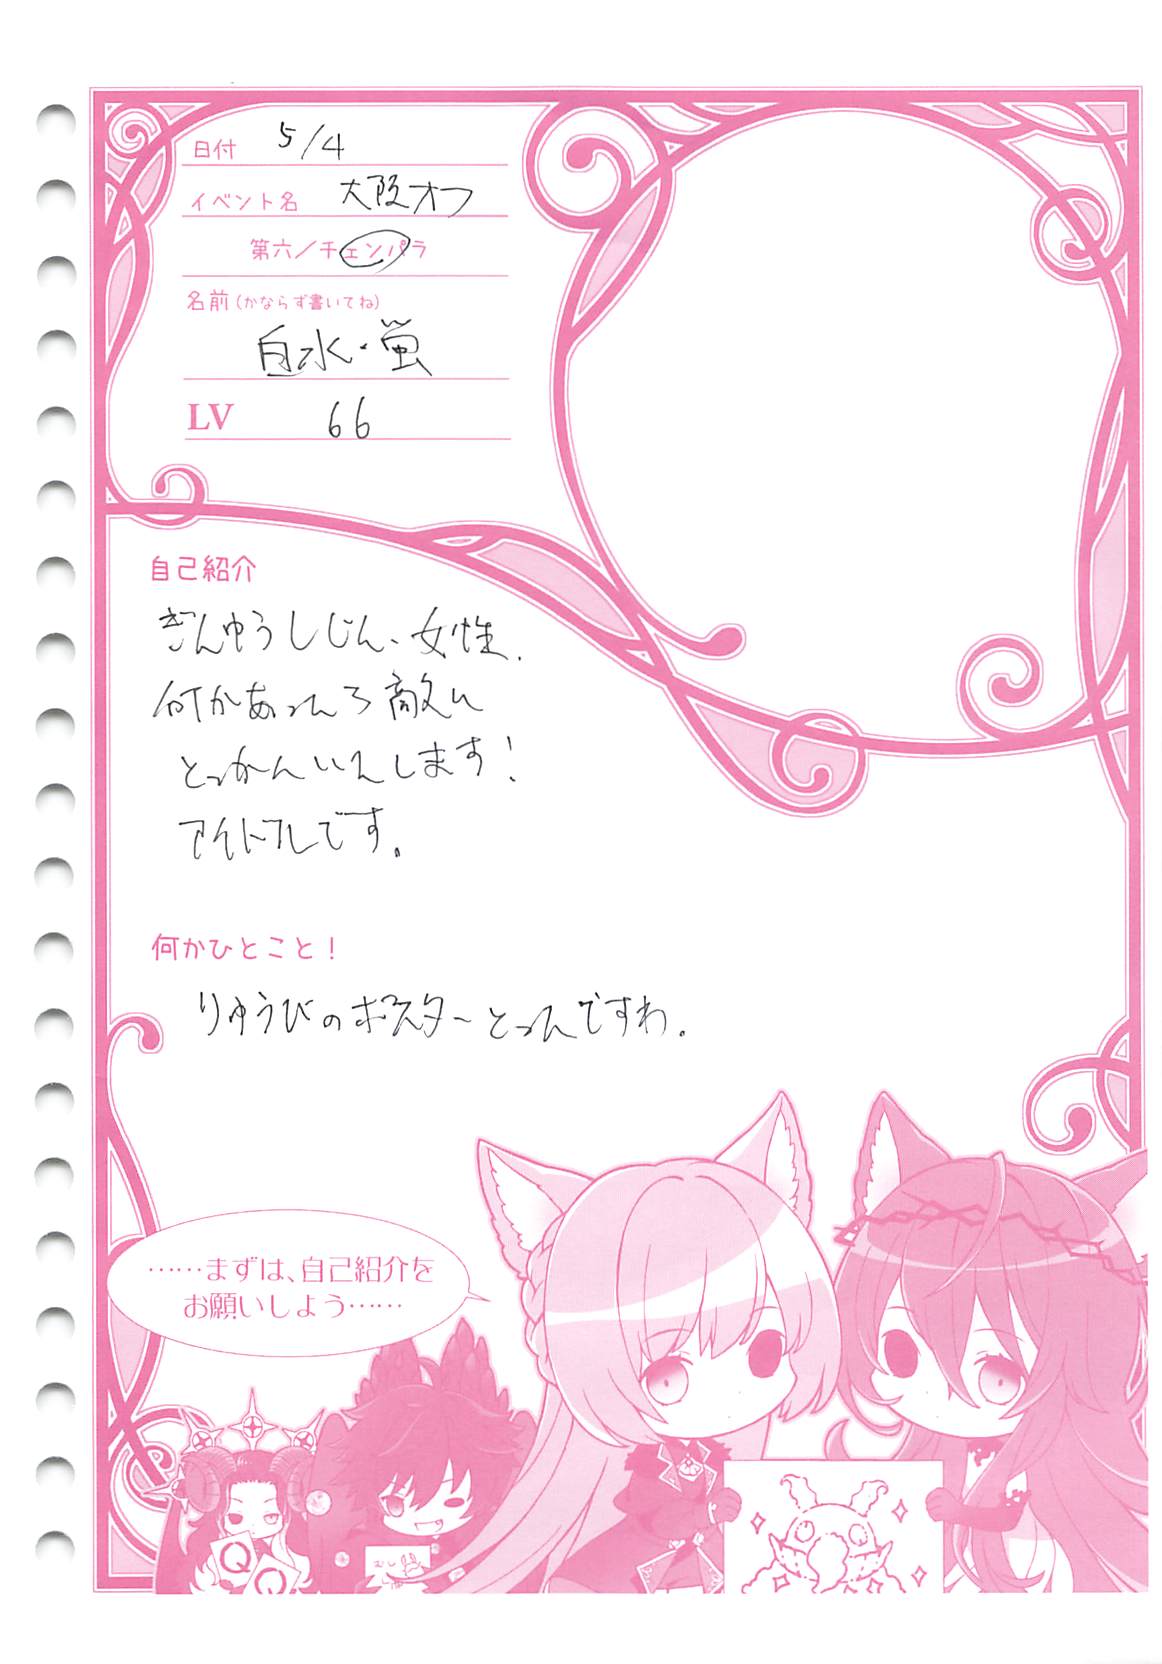 日付 5/4
イベント名 大阪オフ
第六／チェンパラ
名前(かならず書いてね)
白水・蛍
LV 66
自己紹介
ぎんゆうしじん、女性、
何かあったら敵に
とっかんいたします!
アイドルです。
何かひとこと！
りゅうびのポスターとったんですわ。
……まずは、自己紹介を
お願いしよう……
Q Q